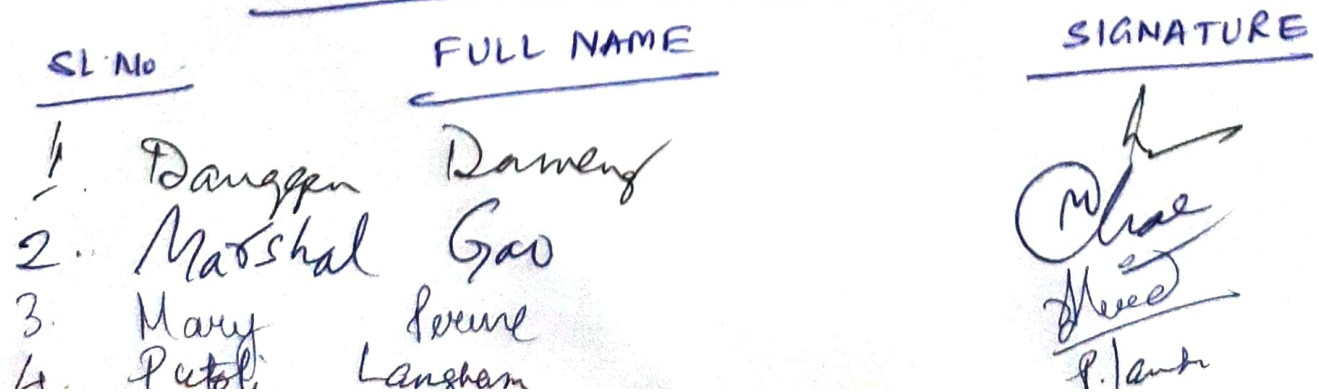 SL. No FULL NAME SIGNATURE
1. Danggen Dameng
2. Marshal Gao
3. Mary Perme
4. Langham P. Lamh